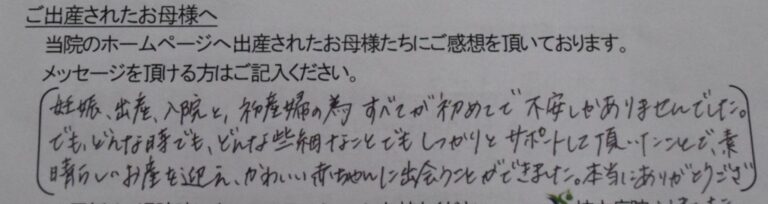 ご出産されたお母様へ
当院のホームページへ出産されたお母様たちにご感想を頂いております。
メッセージを頂ける方はご記入ください。
妊娠、出産、入院と、初産婦の為すべてが初めてで不安しかありませんでした。
でも、どんな時でも、どんな些細なことでもしっかりとサポートして頂いたことで、素
晴らしいお産を迎え、かわいい赤ちゃんに出会うことができました。本当にありがとうござ